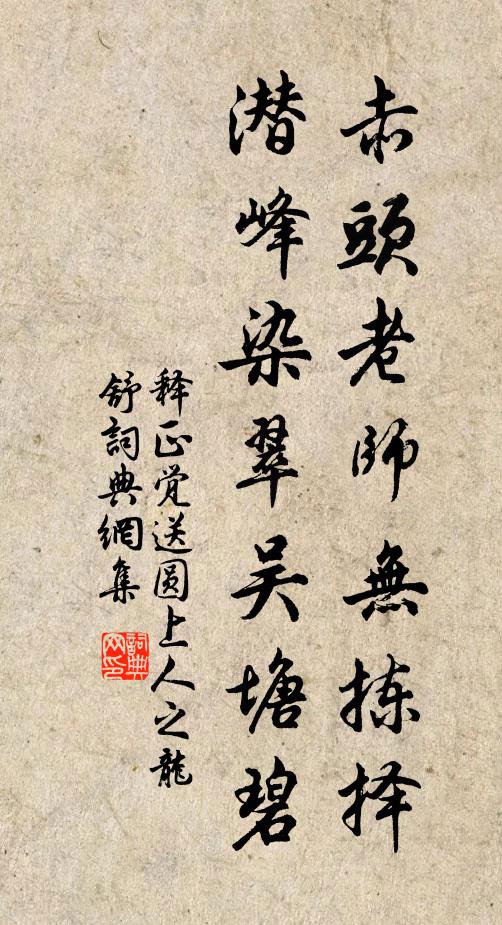 赤頭老师無拣择
潜峰染翠吴塘碧
释正觉送圆上人之龍
舒詞典網集
詞典網印